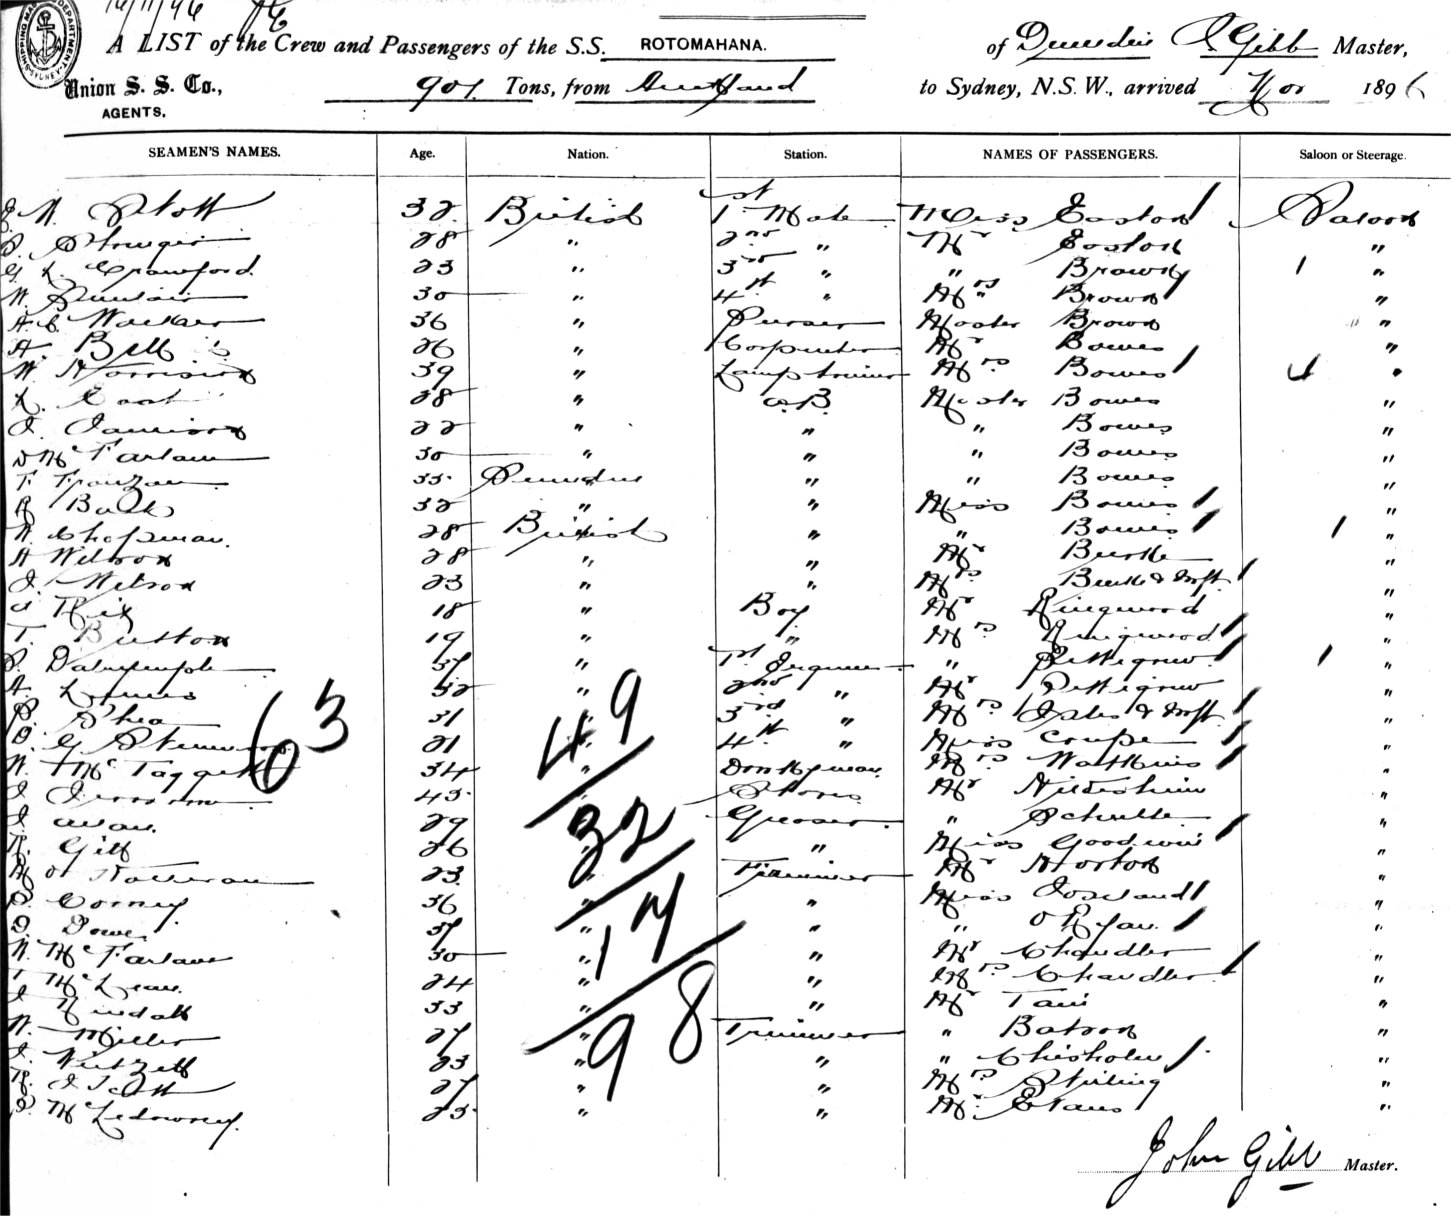 16/11/96
SHIPPING MA DEPARTMENT SYDNEY
A LIST of the Crew and Passengers of the S.S. ROTOMAHANA. of Dunedin J Gibb Master,
Union S. S. Co., 907 Tons, from Auckland to Sydney, N.S.W., arrived Nov 1896
AGENTS.
SEAMEN'S NAMES. Age. Nation. Station. NAMES OF PASSENGERS. Saloon or Steerage.
J M Stott 32 British 1st Mate Miss Easton Saloon
28 " 2nd " Mr Easton "
G L Crawford 23 " 3rd " " Brown 1 "
W. Sinclair 30 " 4th " Mrs " Brown "
A C Walker 36 " Purser Master Brown "
A. Bell 26 " Carpenter Mr Bowes "
W Harrison 39 " Lamptrimer Mrs Bowes 4 "
28 " A.B. Master Bowes "
J. Jamieson 22 " " " Bowes "
D McFarlane 30 " " " Bowes "
F 35 " " Bowes "
32 " " Miss Bowes "
W. Chapman 28 British " " Bowes 1 "
A Wilson 28 " " Mr Burke "
J. Wilson 23 " " Mrs Burke & Inft "
Hix 18 " Boy Mr Ringwood "
T. Button 19 " " Mrs Ringwood "
P. Dalrymple 37 " 1st Engineer " Pettigrew 1 "
A. 32 " 2nd " Mr Pettigrew "
P. Shea 31 " 3rd " Mrs & Inft "
63
D. G 21 " 4th " Miss Coupe "
49
W. McTaggart 34 " Donkyman Mrs Watkins "
J 43 " Stores Mr "
J 29 " Greaser " Schulte "
32
R. Gill 26 " " Miss Goodwin "
23 " Trimmer Mr Norton "
P. Corney 36 " " Miss "
17
D. Dowe 37 " " " "
W. McFarlane 30 " " Mr Chandler "
T McLean 24 " " Mrs Chandler "
33 " " Mr "
98
W. Miller 27 " Trimmer " Batson "
J. 23 " " " Chisholm "
R. J Scott 27 " " Mrs Stirling "
P. 25 " " Mr Evans "
John Gibb Master.